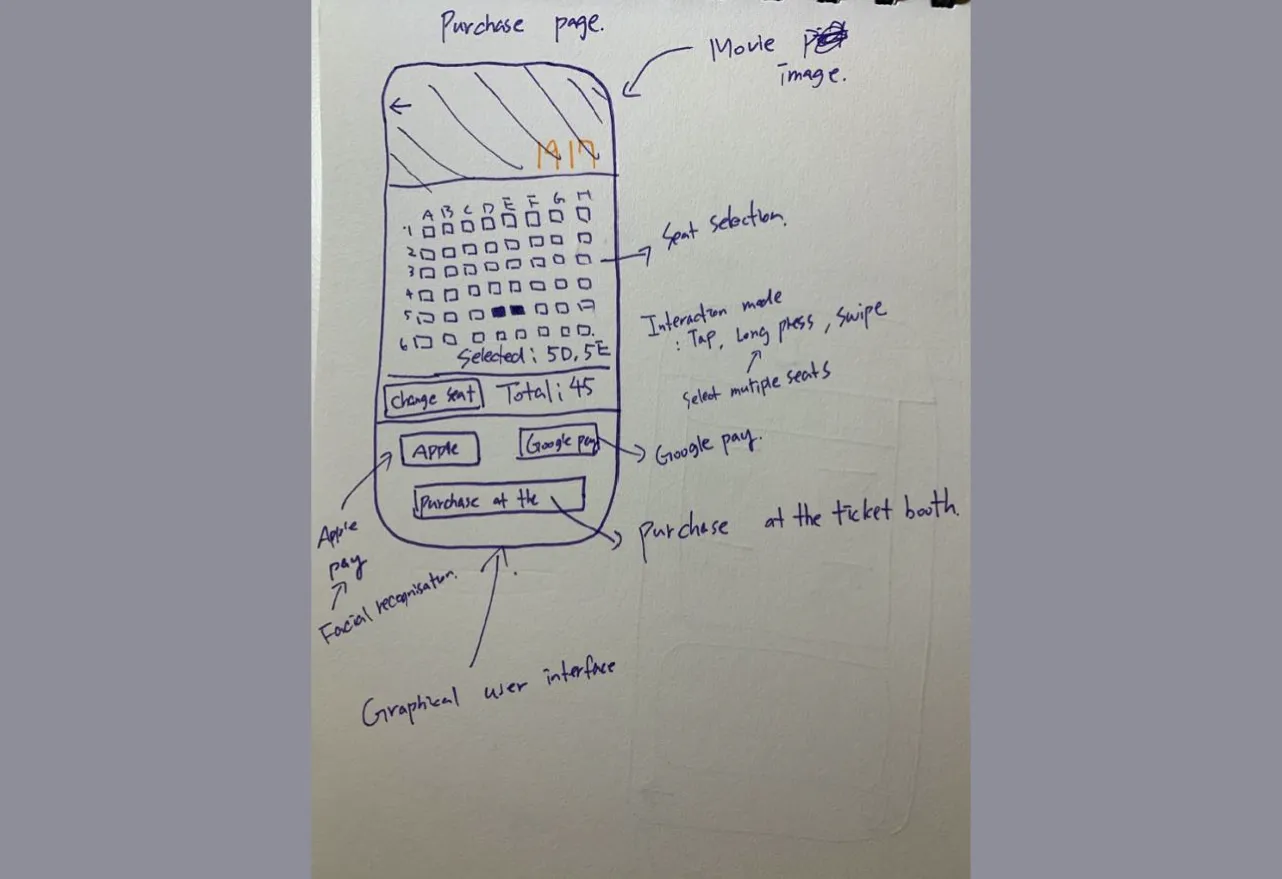 Purchase page.
Movie
image.
←
1917
A B C D E F G H
1
2
3
4
5
6
Selected: 5D, 5E
Change seat
Total: 45
Apple
Google pay
Purchase at the
Seat selection.
Interaction mode
: Tap, Long press, Swipe
Select mutiple seats
Google pay.
Purchase at the ticket booth.
Apple
pay
Facial recognisation.
Graphical user interface